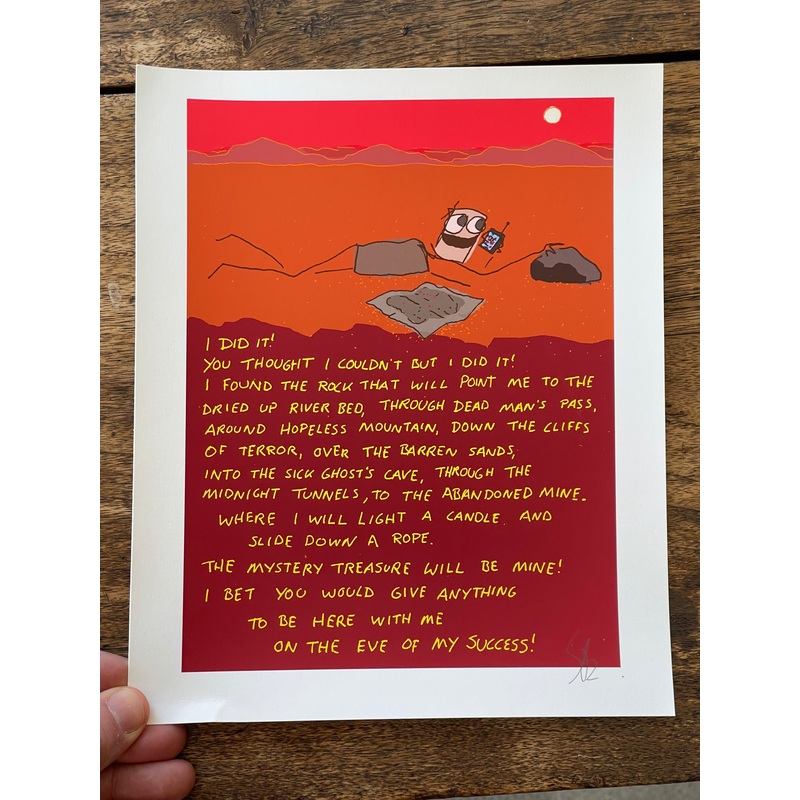 I DID IT!
YOU THOUGHT I COULDN'T BUT I DID IT!
I FOUND THE ROCK THAT WILL POINT ME TO THE
DRIED UP RIVER BED, THROUGH DEAD MAN'S PASS,
AROUND HOPELESS MOUNTAIN, DOWN THE CLIFFS
OF TERROR, OVER THE BARREN SANDS,
INTO THE SICK GHOST'S CAVE, THROUGH THE
MIDNIGHT TUNNELS, TO THE ABANDONED MINE.
WHERE I WILL LIGHT A CANDLE AND
SLIDE DOWN A ROPE.
THE MYSTERY TREASURE WILL BE MINE!
I BET YOU WOULD GIVE ANYTHING
TO BE HERE WITH ME
ON THE EVE OF MY SUCCESS!